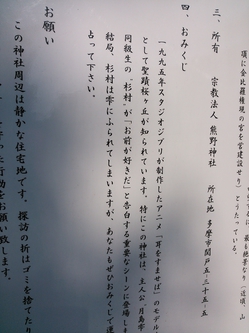 頃に金比羅権現の宮を営建設せり）とうたっている。
三、所有　宗教法人　熊野神社　所在地　多摩市関戸五-三十五-五
四、おみくじ
一九九五年スタジオジブリが制作したアニメ「耳をすませば」のモデル
として聖蹟桜ヶ丘が知られています。特にこの神社は、主人公・月島雫
同級生の“杉村”が「お前が好きだ」と告白する重要なシーンに登場しま
結局、杉村は雫にふられてしまいますが、あなたもぜひおみくじで運
占って下さい。
お願い
この神社周辺は静かな住宅地です。探訪の折はゴミを捨てたり
行動をお願い致します。